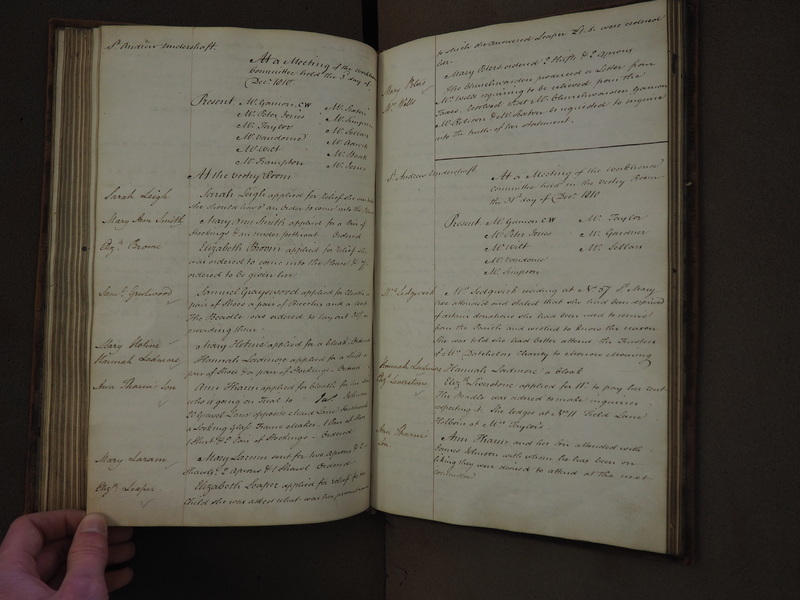 St Andrew Undershaft.
At a Meeting of the workhouse
Committee held the 3d day of
Decr 1810.
Present Mr Gamon CW Mr Seaton
Mr Peter Jones Mr Simpson
Mr Taylor Mr Sellan
Mr Vandome
Mr Witt
Mr Frampton Mr Jones
At the vestry Room
Sarah Leigh Sarah Leigh applied for relief
She should have an order to come into the
Mary Ann Smith Mary Ann Smith applied for a Pair of
Stockings & an under petticoat. Ordered
Elizth Brown Elizabeth Brown applied for relief She
was ordered to come into the House &
ordered to be given her
Saml Samuel applied for
pair of Shoes a pair of Breeches and a
The Beadle was ordered to lay out
providing them.
Mary Holme Mary Holme applied for a Cloak. Ordered
Hannah Ladmore Hannah Ladmore applied for a Shift a
pair of Shoes & a pair of Stockings. Ordered
Ann Tharm Son Ann Tharm applied for cloaths for her Son
who is going on Trial to Jas Johnson
20 Gravel Lane opposite
a Looking Glass Frame maker. 1 Pair of Shoes
1 Shirt & 2 Pair of Stockings. Ordered
Mary Laram Mary Laram sent for two Aprons & 2
2 Aprons & 1 Shawl Ordered.
Elizth Leaper Elizabeth Leaper applied for relief for
Child she was asked what was her
to which she answered Leaper £1.. were ordered
her.
Mary Peters ordered 2 Shifts & 2 Aprons
Mrs Wells The Churchwarden produced a Letter from
Mr Wells requiring to be relieved from the
Taxes. Resolved that Mr Churchwarden Gamon
& Mr Seaton be requested to inquire
into the truth of her statement.
St Andrew Undershaft
At a Meeting of the workhouse
Committee held in the Vestry Room
the 31st day of Decr 1810
Present Mr Gamon CW Mr Taylor
Mr Peter Jones Mr Gardner
Mr Witt Mr Sellan
Mr Vandome
Mr Simpson
Mrs Sedgwick Mrs Sedgwick residing at No 57 St Mary
Axe attended and stated that she had been deprived
of certain donations she had been used to receive
from the Parish and wished to know the reason
She was told she had better attend the Trustees
of Mr Batchelors Charity to morrow morning
Hannah Ladmore Hannah Ladmore a Cloak
Elizth Livestone Elizth Livestone applied for to pay her rent.
The Beadle was ordered to make inquiries
respecting it. She lodges at No 11 Field Lane
Holborn at Mrs Taylor's
Ann Tharm Son Ann Tharm and her Son attended with
James Johnson with whom he has been on
liking they were desired to attend at the next
Committee